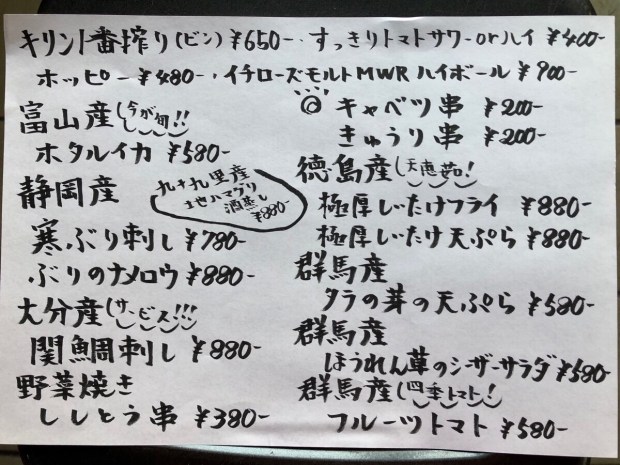 キリン一番搾り(ビン)¥650-・すっきりトマトサワーorハイ ¥400-
ホッピー¥480-・イチローズモルトMWRハイボール¥900-
富山産(今が旬!!
ホタルイカ ¥580-
静岡産
寒ぶり刺し¥780-
ぶりのナメロウ¥880-
九十九里産
土地ハマグリ
酒蒸し
¥880-
大分産(サービス!!!
関鯛刺し¥880-
野菜焼き
ししとう串 ¥380-
◎キャベツ串 ¥200-
きゅうり串 ¥200-
徳島産(天恵茹!
極厚しいたけフライ ¥880-
極厚しいたけ天ぷら¥880-
群馬産
タラの芽の天ぷら ¥580-
群馬産
ほうれん草のシーザーサラダ¥580-
群馬産(四季トマト!
フルーツトマト ¥580-